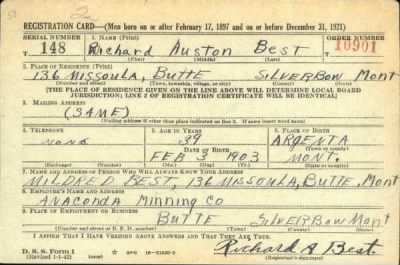 REGISTRATION CARD—(Men born on or after February 17, 1897 and on or before December 31, 1921)
SERIAL NUMBER 1. NAME (Print) ORDER NUMBER
148 Richard Auston Best 10901
(First) (Middle) (Last)
2. PLACE OF RESIDENCE (Print)
136 MISSOULA, BUTTE SILVERBOW MONT
(Number and street) (Town, township, village, or city) (County) (State)
[THE PLACE OF RESIDENCE GIVEN ON THE LINE ABOVE WILL DETERMINE LOCAL BOARD
JURISDICTION; LINE 2 OF REGISTRATION CERTIFICATE WILL BE IDENTICAL]
3. MAILING ADDRESS
(SAME)
[Mailing address if other than place indicated on line 2. If same insert word same]
4. TELEPHONE 5. AGE IN YEARS 6. PLACE OF BIRTH
none 39 ARGENTA
DATE OF BIRTH (Town or county)
FEB 3 1903 MONT.
(Exchange) (Number) (Mo.) (Day) (Yr.) (State or country)
7. NAME AND ADDRESS OF PERSON WHO WILL ALWAYS KNOW YOUR ADDRESS
MILDRED BEST, 136 MISSOULA, BUTTE, Mont
8. EMPLOYER'S NAME AND ADDRESS
ANACONDA MINNING CO
9. PLACE OF EMPLOYMENT OR BUSINESS
BUTTE SILVERBOW MONT
(Number and street or R. F. D. number) (Town) (County) (State)
I AFFIRM THAT I HAVE VERIFIED ABOVE ANSWERS AND THAT THEY ARE TRUE.
D. S. S. Form 1 GPO 16-21630-2 Richard A Best.
(Revised 1-1-42) (Registrant's signature)